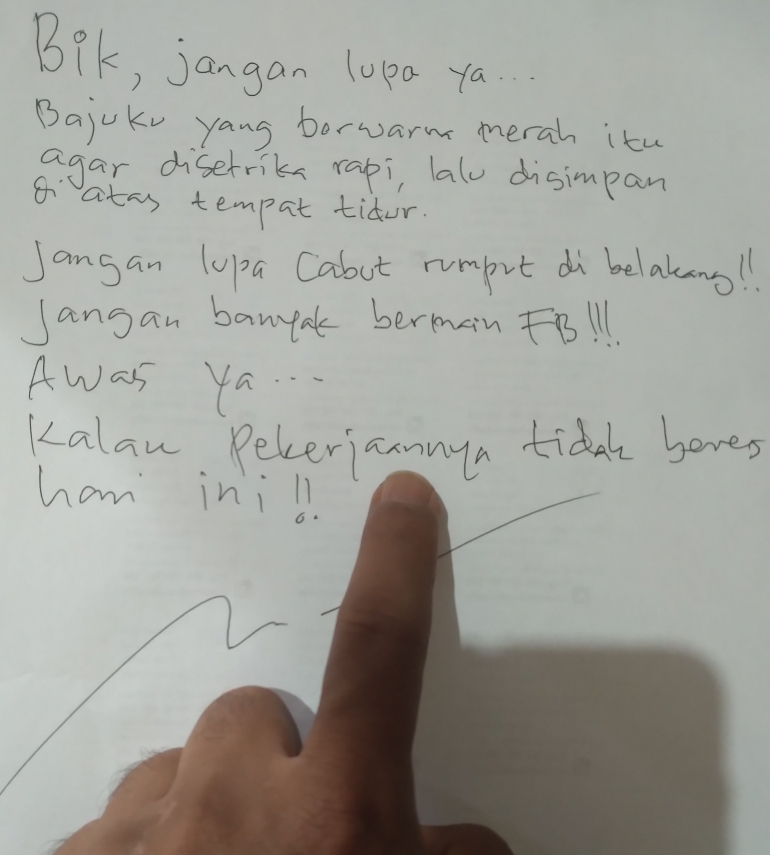 Bik, jangan lupa ya...
Bajuku yang berwarna merah itu
agar disetrika rapi, lalu disimpan
di atas tempat tidur.
Jangan lupa Cabut rumput di belakang!!
Jangan banyak bermain FB!!!
Awas ya...
Kalau Pekerjaannya tidak beres
hari ini!!